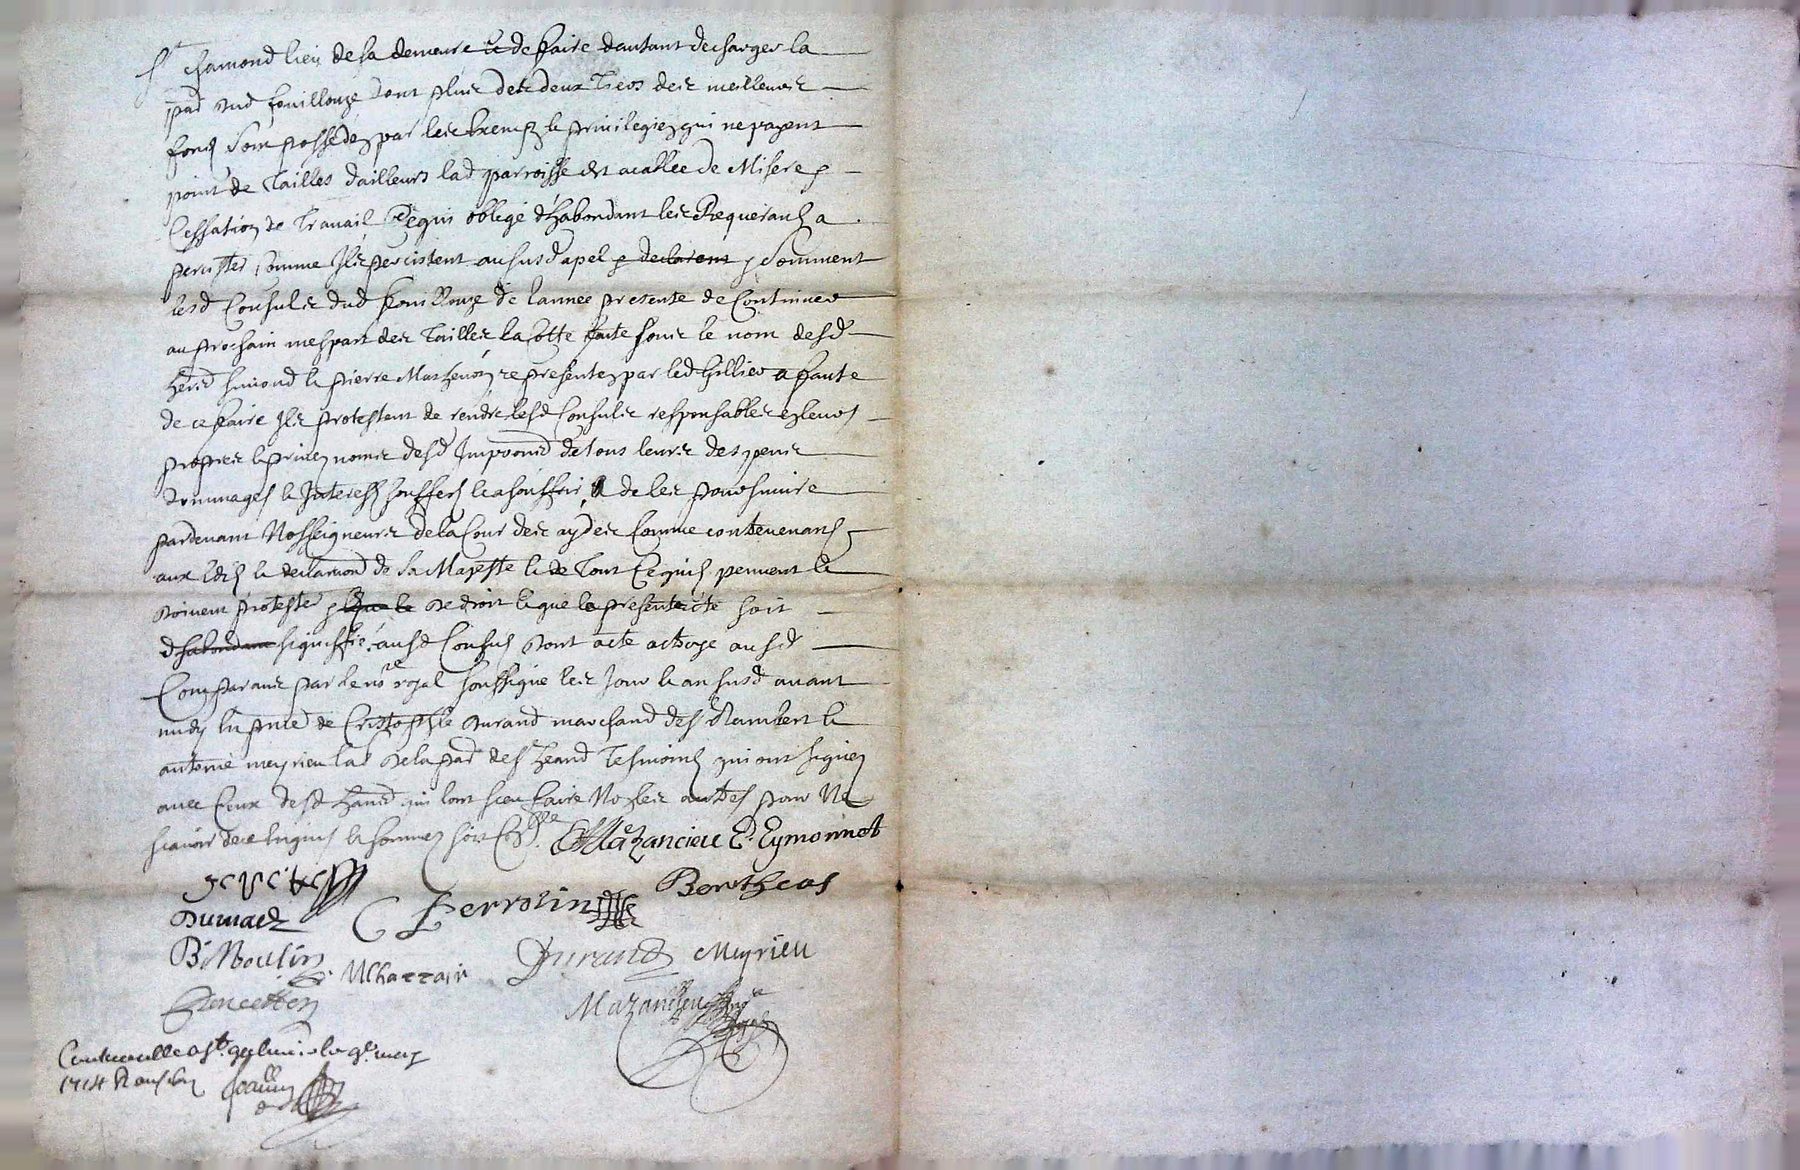 St Chamond lieu de sa demeure & de faire dautant descharger la
par dud fouillouze dont plus des deux tiers des meilleurs
fonds sont possédés par les exempts & privilegiez qui ne payent
point de Tailles dailleurs lad parroisse est acablee de Misere &
Cessation de Travail Ce qui oblige dhabondant les Requerants a
percister comme Ils percistent aususd apel & declarent & somment
lesd Consuls dud fouillouze de lannee presente de Continuer
au prochain mespart des Tailles la Cotte faite sous le nom desd
simond & pierre Mathevon representez par led Gillier a faute
de ce faire Ils protestent de rendre lesd Consuls responsables en leurs
propres & privez noms desd Impositions de tous leurs despens
dommages & Interests soufferts & a souffrir & de les poursuivre
pardevant Nosseigneurs de la Cour des aydes comme contrevenants
aux Edits & declarations de Sa Majeste & de Tout Ce quils peuvent &
doivent protester de droit & que le present acte soit
dhabondant signiffié ausd Consuls dont acte octroye ausd
Comparans par le nore royal soussigne les Jour & an susd avant
midy En pnce de Cristophle Durand marchand de St Rambert &
antoine meyrieu lad de la par de St heand Tesmoins qui ont signez
avec Ceux desd qui lont sceu faire No les autres pour Ne
scavoir de ce Enquis & sommez
Mazancieu E. Eymonnet
Dumas
Perrotin
Bertheas
B. Moulin
Durand
Meyrieu
Mazancieu
Controrolle a St
1714